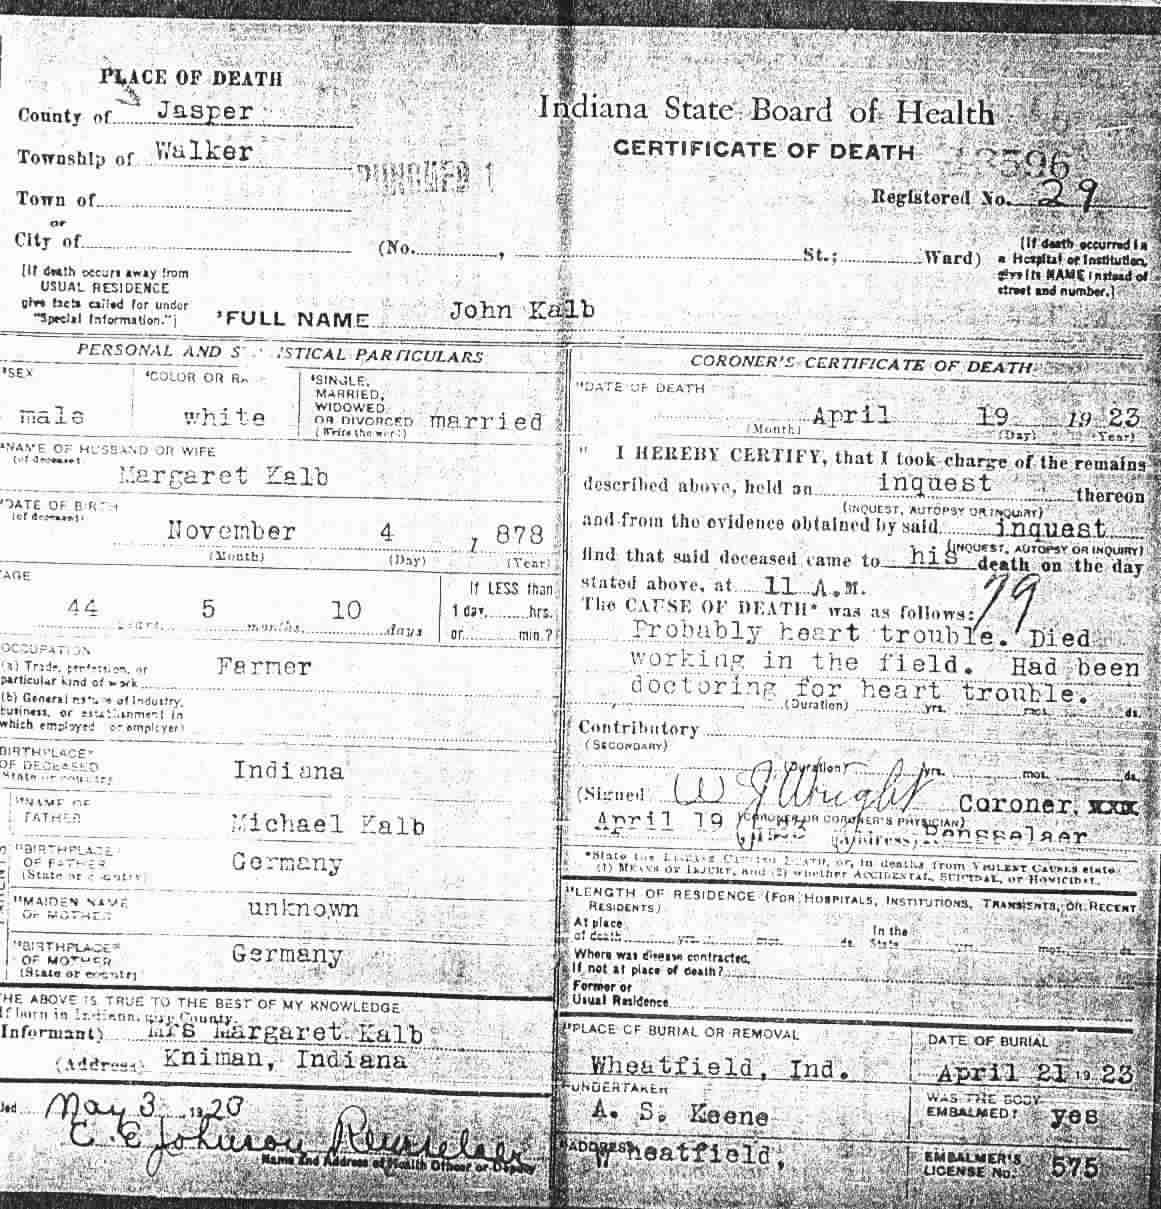 PLACE OF DEATH
County of Jasper
Township of Walker
Town of
or
City of
(No. , St.; Ward)
[If death occurs away from
USUAL RESIDENCE
give facts called for under
"Special Information."]
Indiana State Board of Health
CERTIFICATE OF DEATH
Registered No. 29
[If death occurred in a
Hospital or Institution,
give its NAME instead of
street and number.]
FULL NAME John Kalb
PERSONAL AND STISTICAL PARTICULARS
SEX
male
COLOR OR RA
white
SINGLE,
MARRIED,
WIDOWED
OR DIVORCED
(Write the word)
married
NAME OF HUSBAND OR WIFE
(of deceased)
Margaret Kalb
DATE OF BIRTH
(of deceased)
November 4 1 878
(Month) (Day) (Year)
AGE
44 years 5 months 10 days
If LESS than
1 day, hrs.
or min.?
OCCUPATION
(a) Trade, profession, or
particular kind of work
Farmer
(b) General nature of industry,
business, or establishment in
which employed (or employer)
BIRTHPLACE
OF DECEASED
State or country
Indiana
NAME OF
FATHER
Michael Kalb
BIRTHPLACE
OF FATHER
(State or country)
Germany
MAIDEN NAME
OF MOTHER
unknown
BIRTHPLACE
OF MOTHER
(State or country)
Germany
HE ABOVE IS TRUE TO THE BEST OF MY KNOWLEDGE
If born in Indiana, say County.
Informant) Mrs Margaret Kalb
(Address) Kniman, Indiana
led May 3 1923
E. E Johnson Rensselaer
Name and Address of Health Officer or Deputy
CORONER'S CERTIFICATE OF DEATH
DATE OF DEATH
April 19 19 23
(Month) (Day) (Year)
I HEREBY CERTIFY, that I took charge of the remains
described above, held an inquest thereon
(INQUEST, AUTOPSY OR INQUIRY)
and from the evidence obtained by said inquest
(INQUEST, AUTOPSY OR INQUIRY)
find that said deceased came to his death on the day
stated above, at 11 A.M.
79
The CAUSE OF DEATH* was as follows:
Probably heart trouble. Died
working in the field. Had been
doctoring for heart trouble.
(Duration) yrs. mos. ds.
Contributory
(SECONDARY)
(Duration) yrs. mos. ds.
(Signed W J Wright Coroner, xxx
(CORONER OR CORONER'S PHYSICIAN)
April 19 (Address) Rensselaer
*State the DISEASE CAUSING DEATH, or, in deaths from VIOLENT CAUSES state
(1) MEANS OF INJURY, and (2) whether ACCIDENTAL, SUICIDAL, OR HOMICIDAL.
LENGTH OF RESIDENCE (FOR HOSPITALS, INSTITUTIONS, TRANSIENTS, OR RECENT
RESIDENTS)
At place
of death yrs. mos. ds.
In the
State yrs. mos. ds.
Where was disease contracted,
If not at place of death?
Former or
Usual Residence
PLACE OF BURIAL OR REMOVAL
Wheatfield, Ind.
DATE OF BURIAL
April 21 19 23
UNDERTAKER
A. S. Keene
WAS THE BODY
EMBALMED? yes
ADDRESS
Wheatfield,
EMBALMER'S
LICENSE No. 575